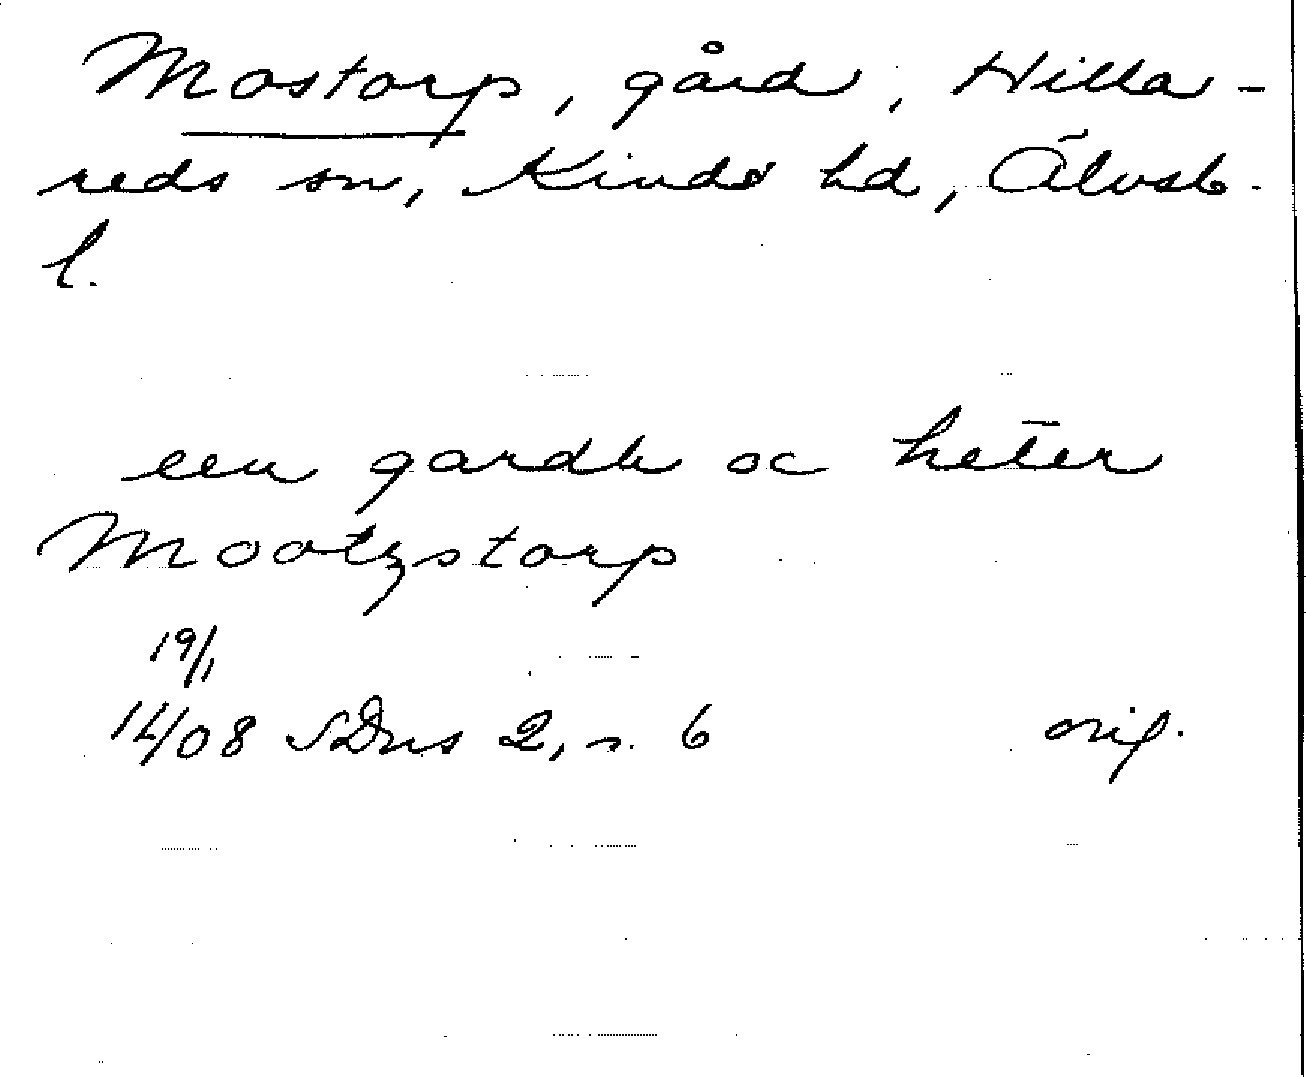 Mostorp, gård, Hilla-
reds sn, Kinds hd, Älvsb.
l.
een gardh oc heter
Mootzstorp
19/1
14/08 SDns 2, s. 6 orig.